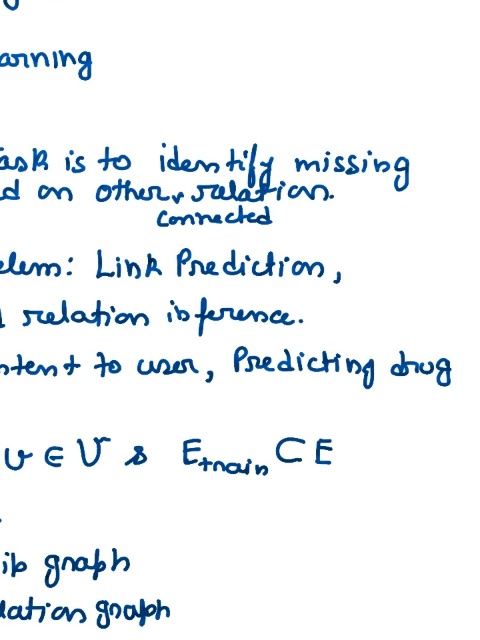 arning
ask is to identify missing
d on other relation.
connected
blem: Link Prediction,
d relation inference.
ntent to user, Predicting drug
v ∈ V & E_train ⊂ E
ip graph
lation graph